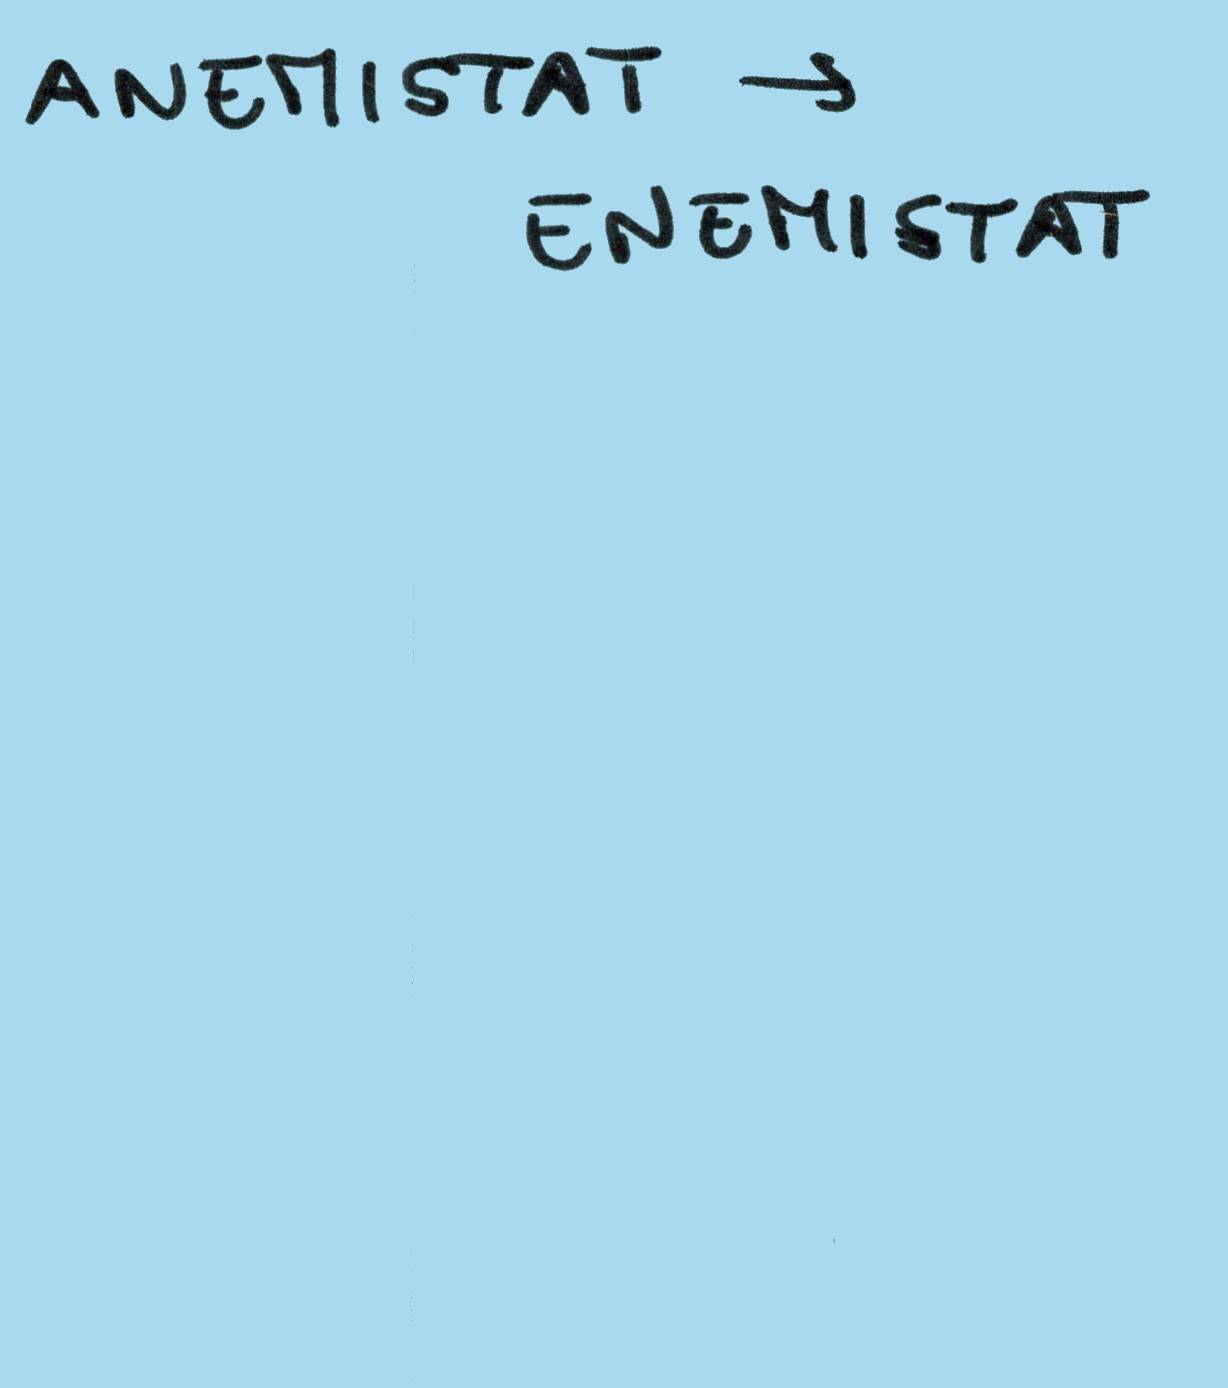 ANEMISTAT →
ENEMISTAT